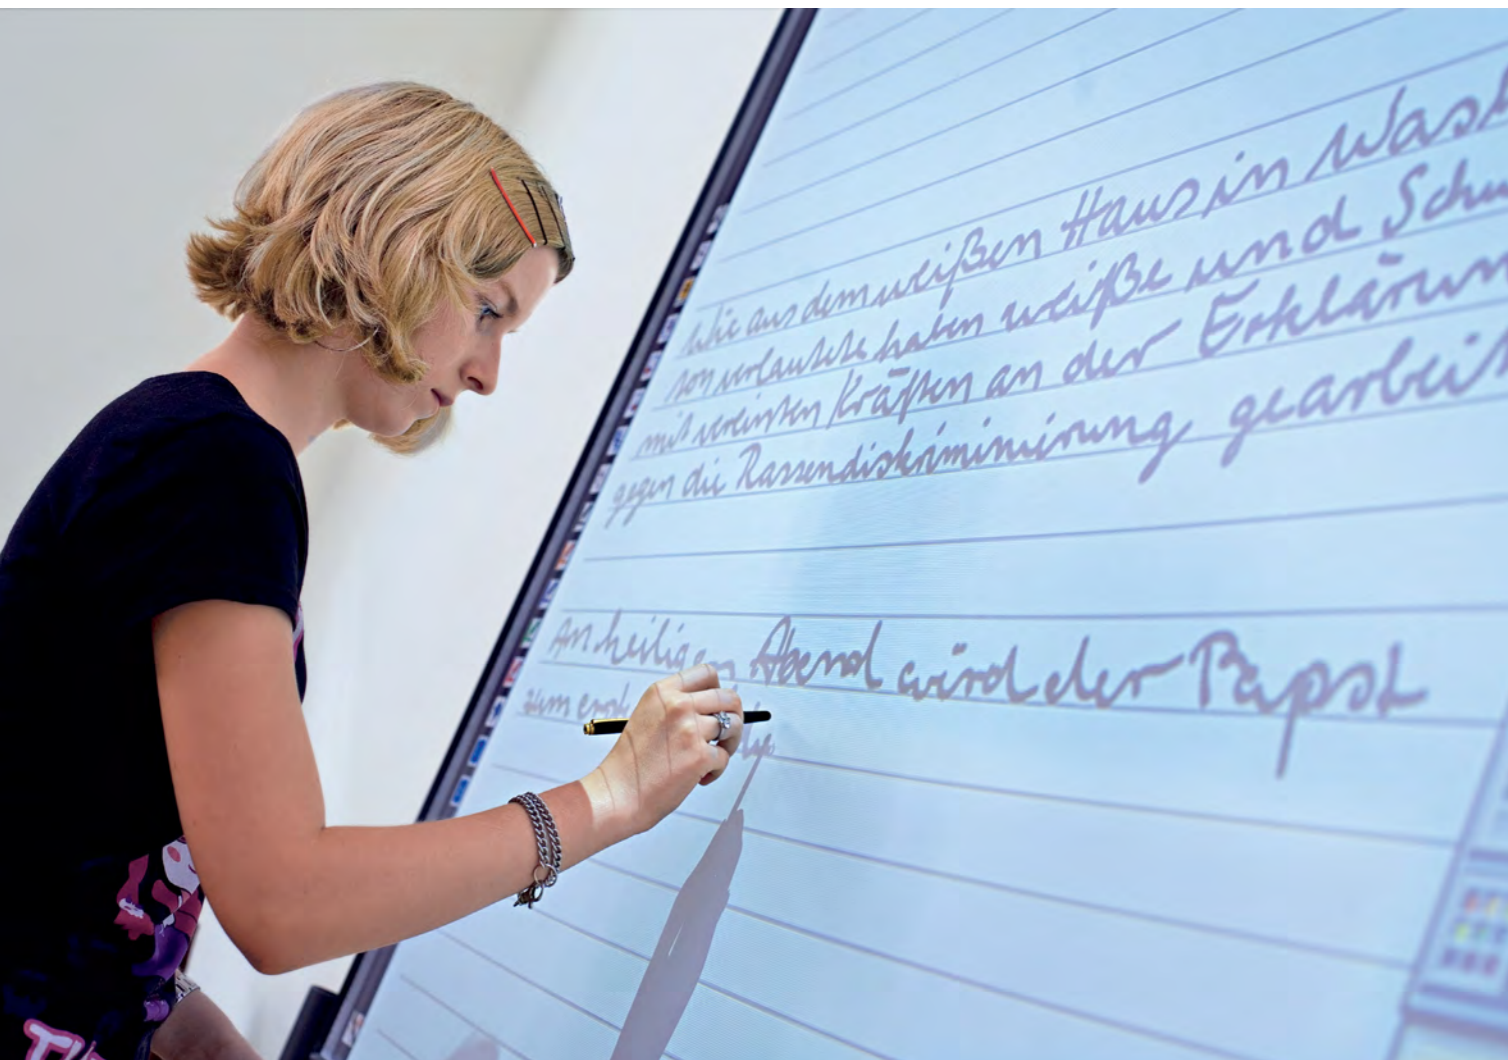 Wie aus dem weißen Haus in Wash
ton verlautete haben weiße und Schw
mit vereinten Kräften an der Erklärun
gegen die Rassendiskriminierung gearbeit
Am heiligen Abend wird der Papst
zum